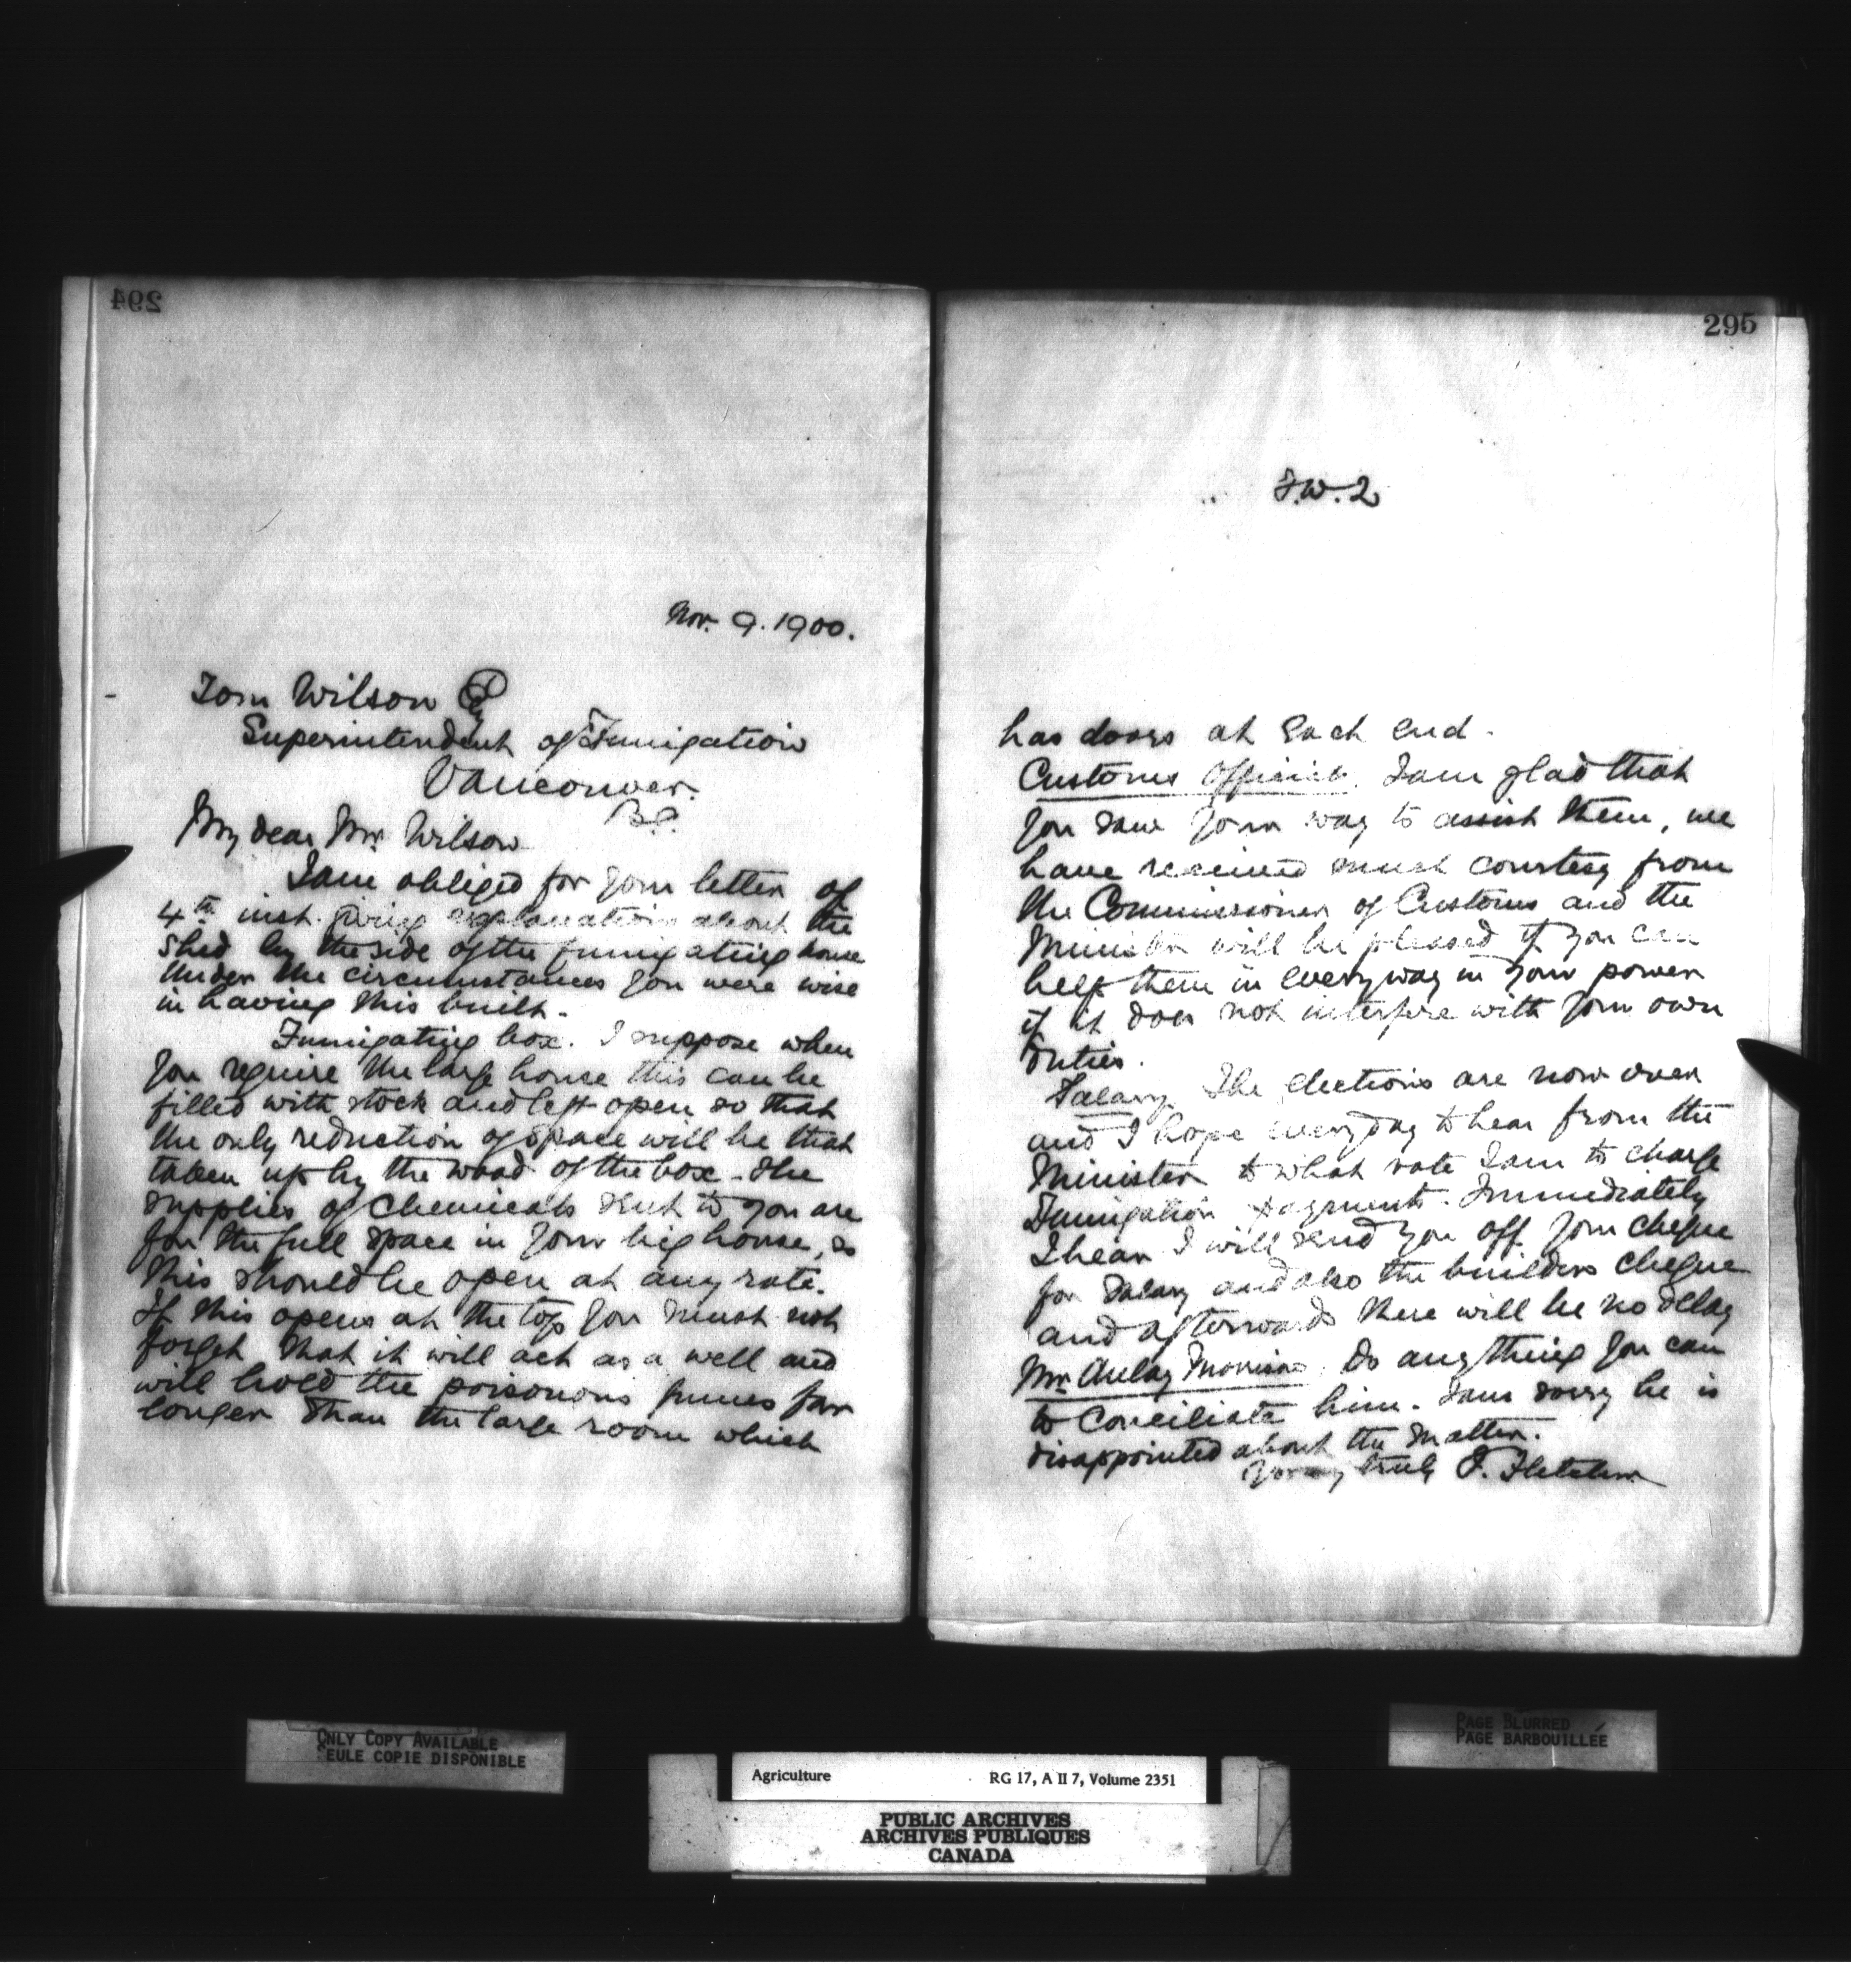 294
Nov. 9. 1900.
Tom Wilson Esq
Superintendent of Fumigation
Vancouver.
B.C.
My dear Mr. Wilson
I am obliged for your letter of
4th inst. giving explanations about the
shed by the side of the fumigating house
Under the circumstances you were wise
in having this built.
Fumigating box. I suppose when
you require the large house this can be
filled with stock and left open so that
the only reduction of space will be that
taken up by the wood of the box. The
supplies of Chemicals sent to you are
for the full space in your big house, so
this should be open at any rate.
If this opens at the top you must not
forget that it will act as a well and
will hold the poisonous fumes far
longer than the large room which
295
T.W. 2
has doors at each end.
Customs Officials. I am glad that
you saw your way to assist them, we
have received much courtesy from
the Commissioner of Customs and the
Minister will be pleased if you can
help them in every way in your power
if it does not interfere with your own
duties.
Salary. The elections are now over
and I hope everyday to hear from the
Minister to what vote I am to charge
Fumigation payments. Immediately
I hear I will send you off your cheque
for salary and also the builders cheque
and afterwards there will be no delay
Mr. Aulay Morrison. Do anything you can
to conciliate him. I am sorry he is
disappointed about the matter.
Yours truly J. Fletcher
ONLY COPY AVAILABLE
EULE COPIE DISPONIBLE
PAGE BLURRED
PAGE BARBOUILLÉE
Agriculture RG 17, A II 7, Volume 2351
PUBLIC ARCHIVES
ARCHIVES PUBLIQUES
CANADA